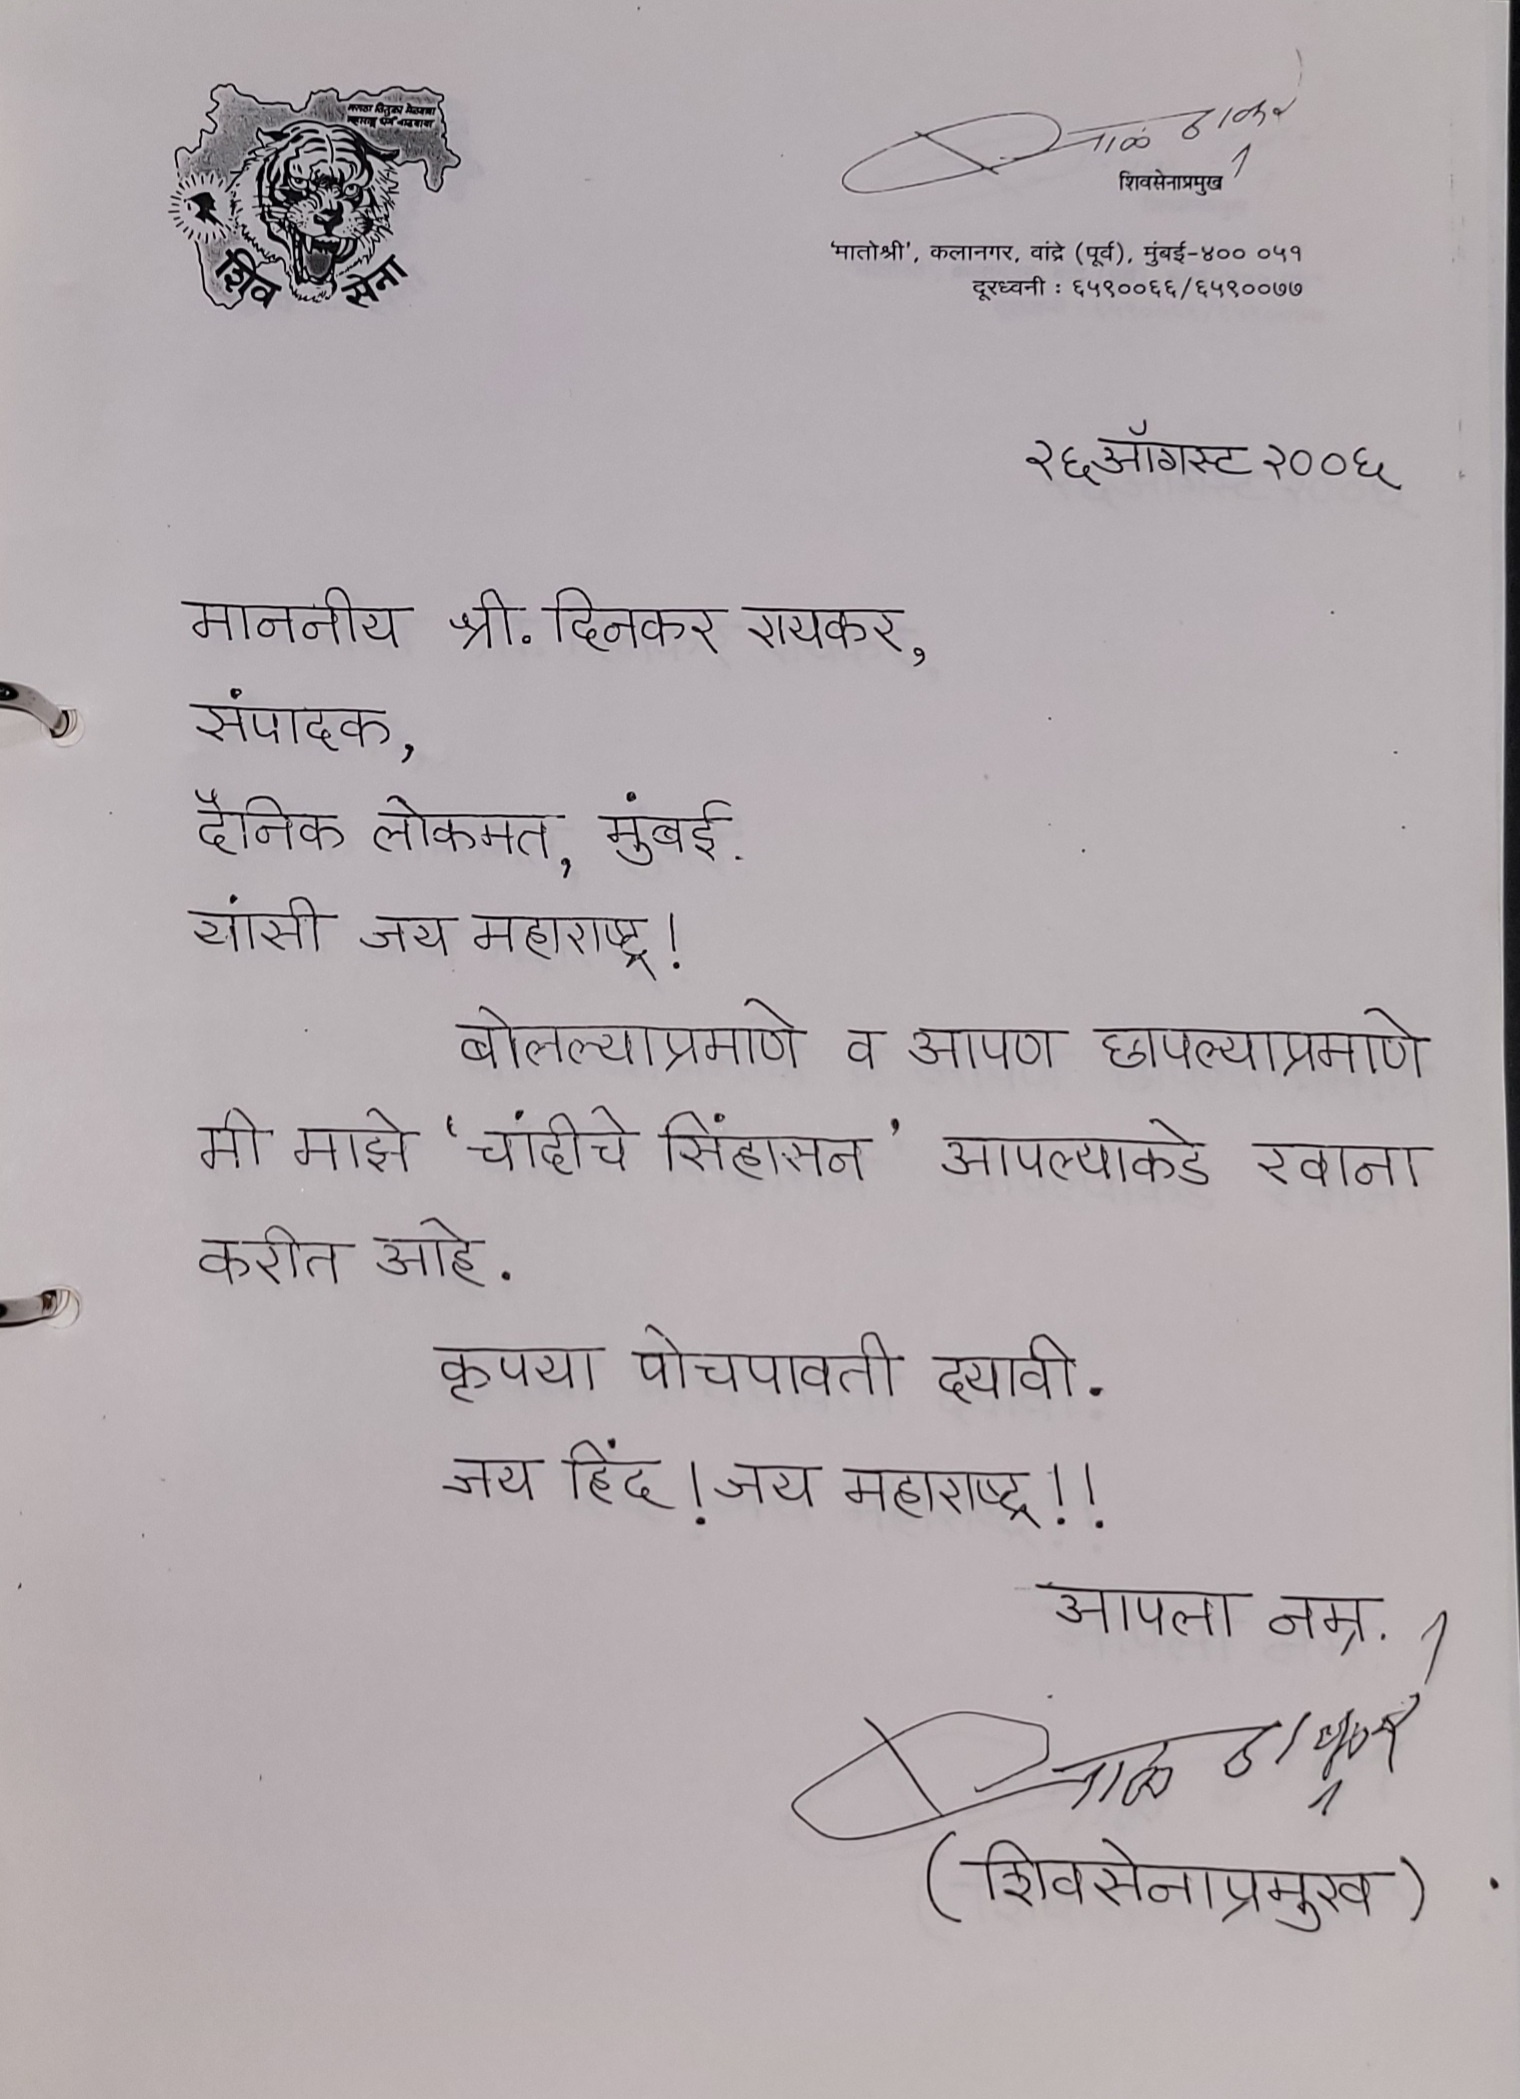 मराठा तितुका मेळवावा
महाराष्ट्र धर्म वाढवावा
शिव सेना
बाळ ठाकरे
शिवसेनाप्रमुख
'मातोश्री', कलानगर, वांद्रे (पूर्व), मुंबई-४०० ०५१
दूरध्वनी : ६५९००६६/६५९००७७
२६ ऑगस्ट २००६
माननीय श्री. दिनकर रायकर,
संपादक,
दैनिक लोकमत, मुंबई.
यांसी जय महाराष्ट्र!
बोलल्याप्रमाणे व आपण छापल्याप्रमाणे
मी माझे 'चांदीचे सिंहासन' आपल्याकडे रवाना
करीत आहे.
कृपया पोचपावती द्यावी.
जय हिंद! जय महाराष्ट्र!!
आपला नम्र.
बाळ ठाकरे
(शिवसेनाप्रमुख)